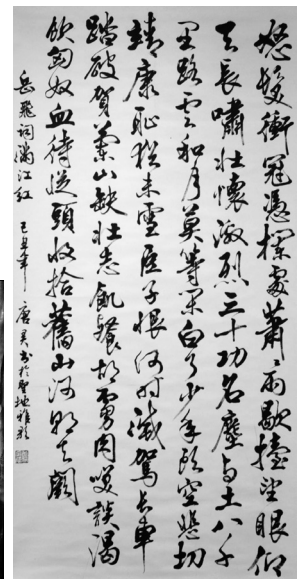 怒髮衝冠憑欄處蕭蕭雨歇擡望眼仰
天長嘯壯懷激烈三十功名塵与土八千
里路云和月莫等閑白了少年頭空悲切
靖康恥猶未雪臣子恨何时滅駕長車
踏破賀蘭山缺壯志飢餐胡虜肉笑談渴
飲匈奴血待從頭收拾舊山河朝天闕
岳飛詞滿江紅 己丑年 唐书於聖地雅